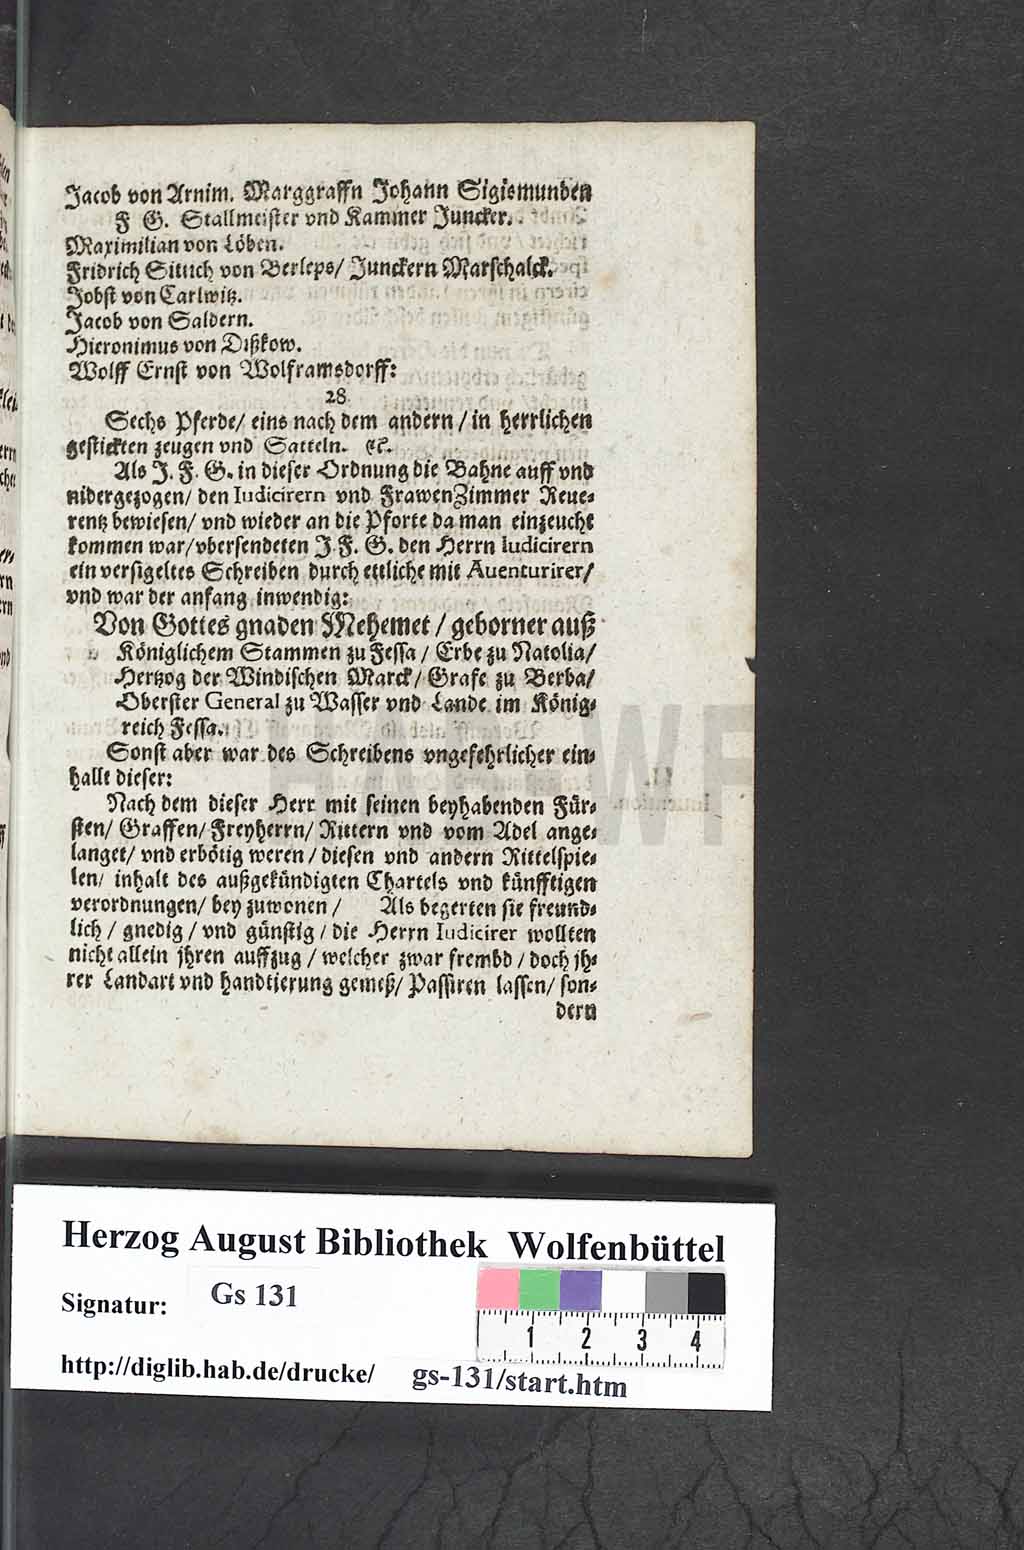 Jacob von Arnim. Marggraffn Johann Sigismunden
F G. Stallmeister vnd Kammer Juncker.
Maximilian von Löben.
Fridrich Sittich von Berleps/ Junckern Marschalck.
Jobst von Carlwitz.
Jacob von Saldern.
Hieronimus von Dißkow.
Wolff Ernst von Wolframsdorff:
28
Sechs Pferde/ eins nach dem andern/ in herrlichen
gestickten zeugen vnd Satteln. ꝛc.
Als J. F. G. in dieser Ordnung die Bahne auff vnd
nidergezogen/ den Iudicirern vnd FrawenZimmer Reue-
rentz bewiesen/ vnd wieder an die Pforte da man einzeucht
kommen war/ vbersendeten J. F. G. den Herrn Iudicirern
ein versigeltes Schreiben durch ettliche mit Auenturirer/
vnd war der anfang inwendig:
Von Gottes gnaden Mehemet/ geborner auß
Königlichem Stammen zu Fessa/ Erbe zu Natolia/
Hertzog der Windischen Marck/ Grafe zu Berba/
Oberster General zu Wasser vnd Lande im König-
reich Fessa.
Sonst aber war des Schreibens vngefehrlicher ein-
hallt dieser:
Nach dem dieser Herr mit seinen beyhabenden Für-
sten/ Graffen/ Freyherrn/ Rittern vnd vom Adel ange-
langet/ vnd erbötig weren/ diesen vnd andern Rittelspie-
len/ inhalt des außgekündigten Chartels vnd künfftigen
verordnungen/ bey zuwonen/ Als begerten sie freund-
lich/ gnedig/ vnd günstig/ die Herrn Iudicirer wollten
nicht allein jhren auffzug/ welcher zwar frembd/ doch jh-
rer Landart vnd handtierung gemeß/ Passiren lassen/ son-
dern
HAB WF
Herzog August Bibliothek Wolfenbüttel
Signatur: Gs 131
1 2 3 4
http://diglib.hab.de/drucke/ gs-131/start.htm